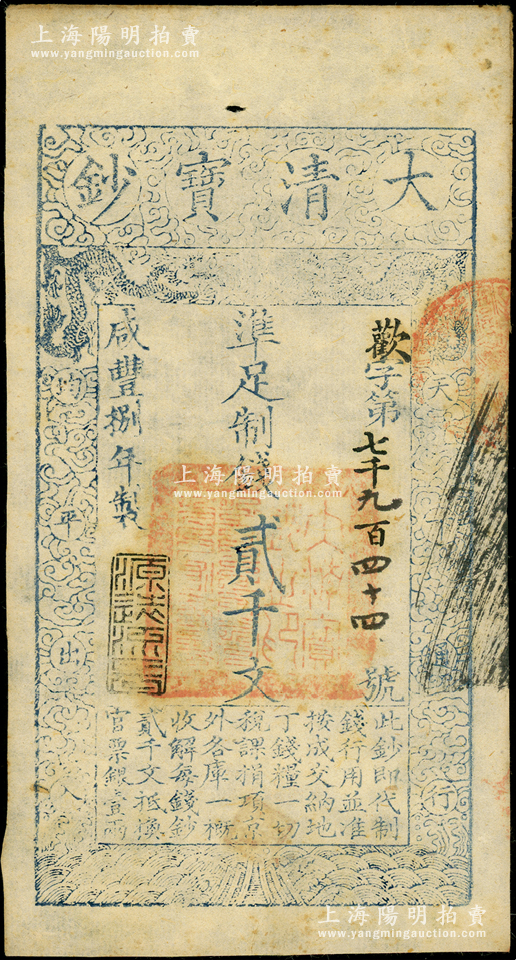 上海陽明拍賣
www.yangmingauction.com
大清寶鈔
天下通行
均平出入
歡字第七千九百四十四號
準足制錢貳千文
咸豐捌年製
此鈔即代制
錢行用並准
按成交納地
丁錢糧一切
稅課捐項京
外各庫一概
收解每錢鈔
貳千文抵換
官票銀壹兩
上海陽明拍賣
www.yangmingauction.com
上海陽明拍賣
www.yangmingauction.com